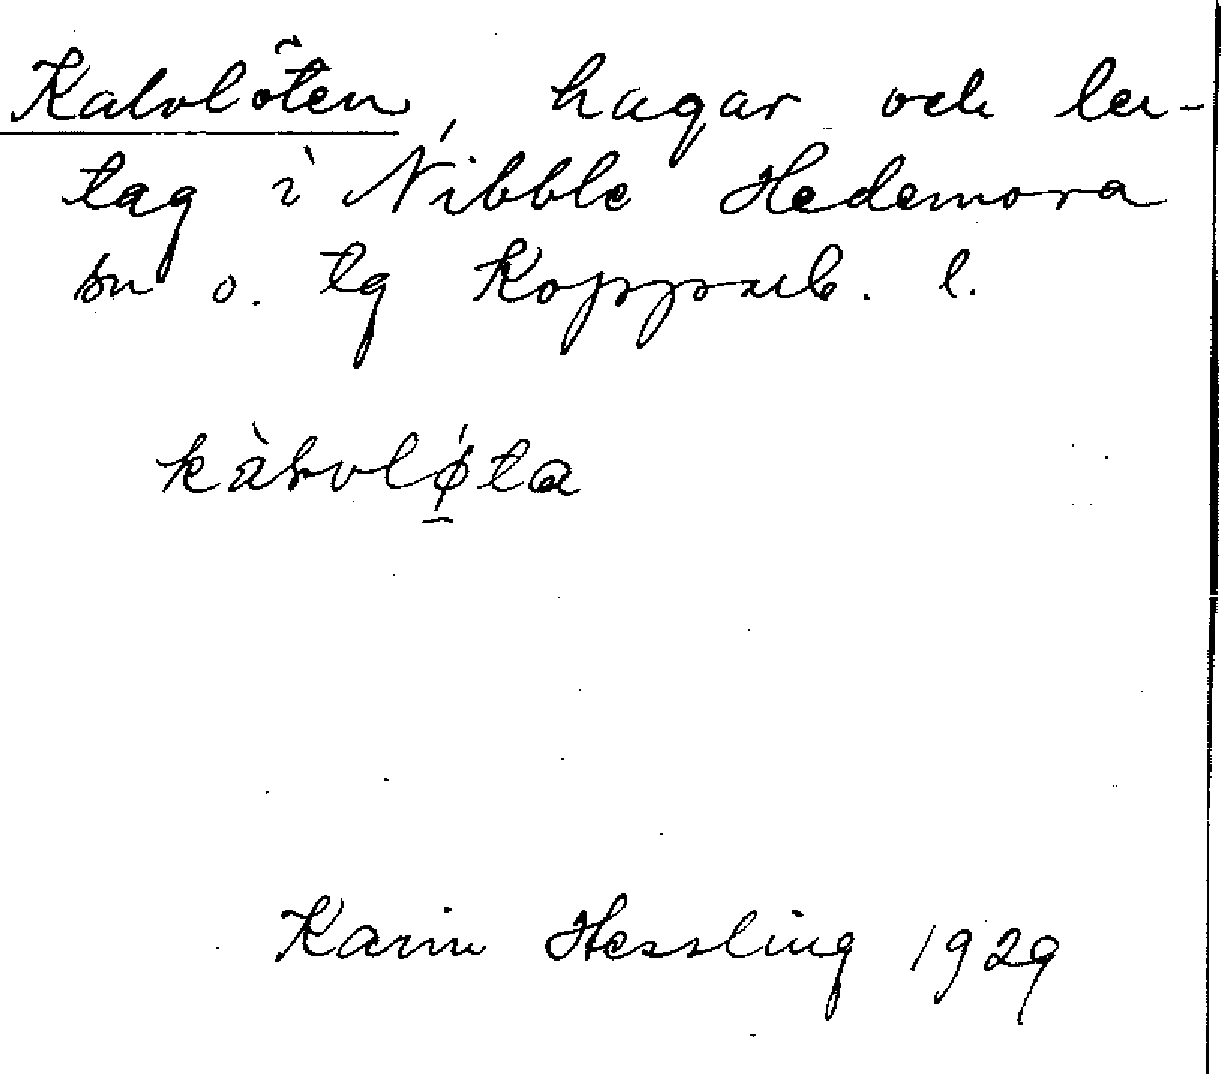 Kalvlöten, hagar och ler-
tag i Nibble Hedemora
sn o. tg Kopparb. l.
kàlvlǿta
Karin Hessling 1929